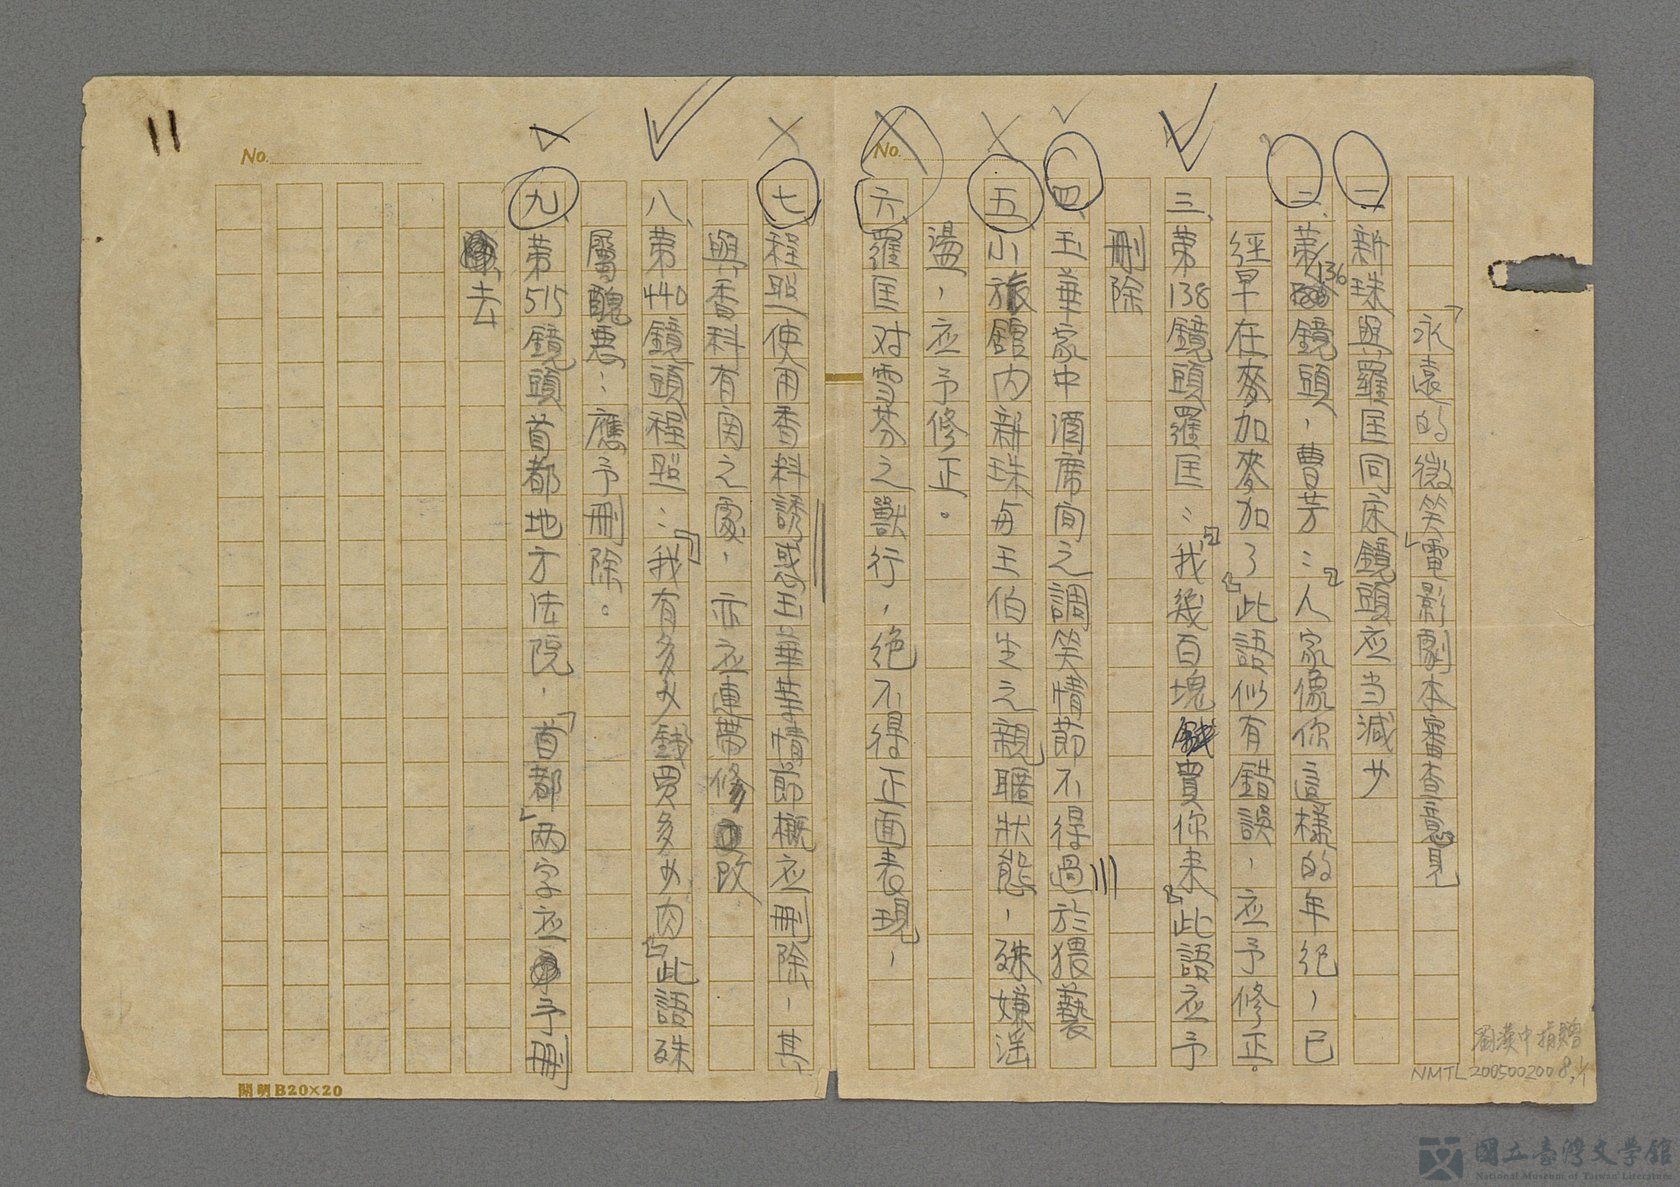 11
No.
No.
「永遠的微笑」電影劇本審查意見
一、新珠與羅匡同床鏡頭应当減少
二、第136鏡頭，曹芳：「人家像你這樣的年紀，已
經早在麥加麥加了」此語似有錯誤，应予修正。
三、第138鏡頭羅匡：「我幾百塊錢買你来」此語应予
刪除
四、玉華家中酒席间之調笑情節不得過於猥褻
五、小旅館内新珠与王伯生之親暱狀態，殊嫌淫
盪，应予修正。
六、羅匡对雪芬之獸行，絕不得正面表現，
七、程照使用香料誘惑玉華等情節概应刪除，其
與香料有関之處，亦应連帶修改
八、第440鏡頭程照：「我有多少錢買多少肉」此語殊
屬醜恶：應予刪除。
九、第515鏡頭首都地方法院，「首都」两字应予刪
去
開明B20×20
劉漢中捐贈
NMTL20050020081
國立臺灣文學館
National Museum of Taiwan Literature